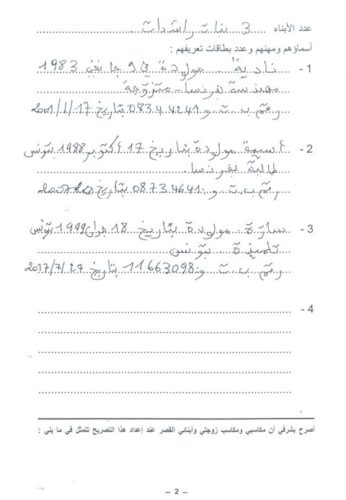 عدد الأبناء 3 بنات راشدات
أسماؤهم ومهنهم وعدد بطاقات تعريفهم :
1 - نادية مولودة في جانفي 1983
مهندسة بفرنسا - متزوجة
رقم ب ت و 08344241 بتاريخ 17/1/2001
2 - أسيمة مولودة بتاريخ 17 أكتوبر 1988 بتونس
طالبة بفرنسا
رقم ب ت و 08734641 بتاريخ
3 - سارة مولودة بتاريخ 18 جوان 1999 بتونس
تلميذة بتونس
رقم ب ت و 11663098 بتاريخ 27/7/2017
4 -
أصرح بشرفي أن مكاسبي ومكاسب زوجتي وأبنائي القصر عند إعداد هذا التصريح تتمثل في ما يلي :
- 2 -